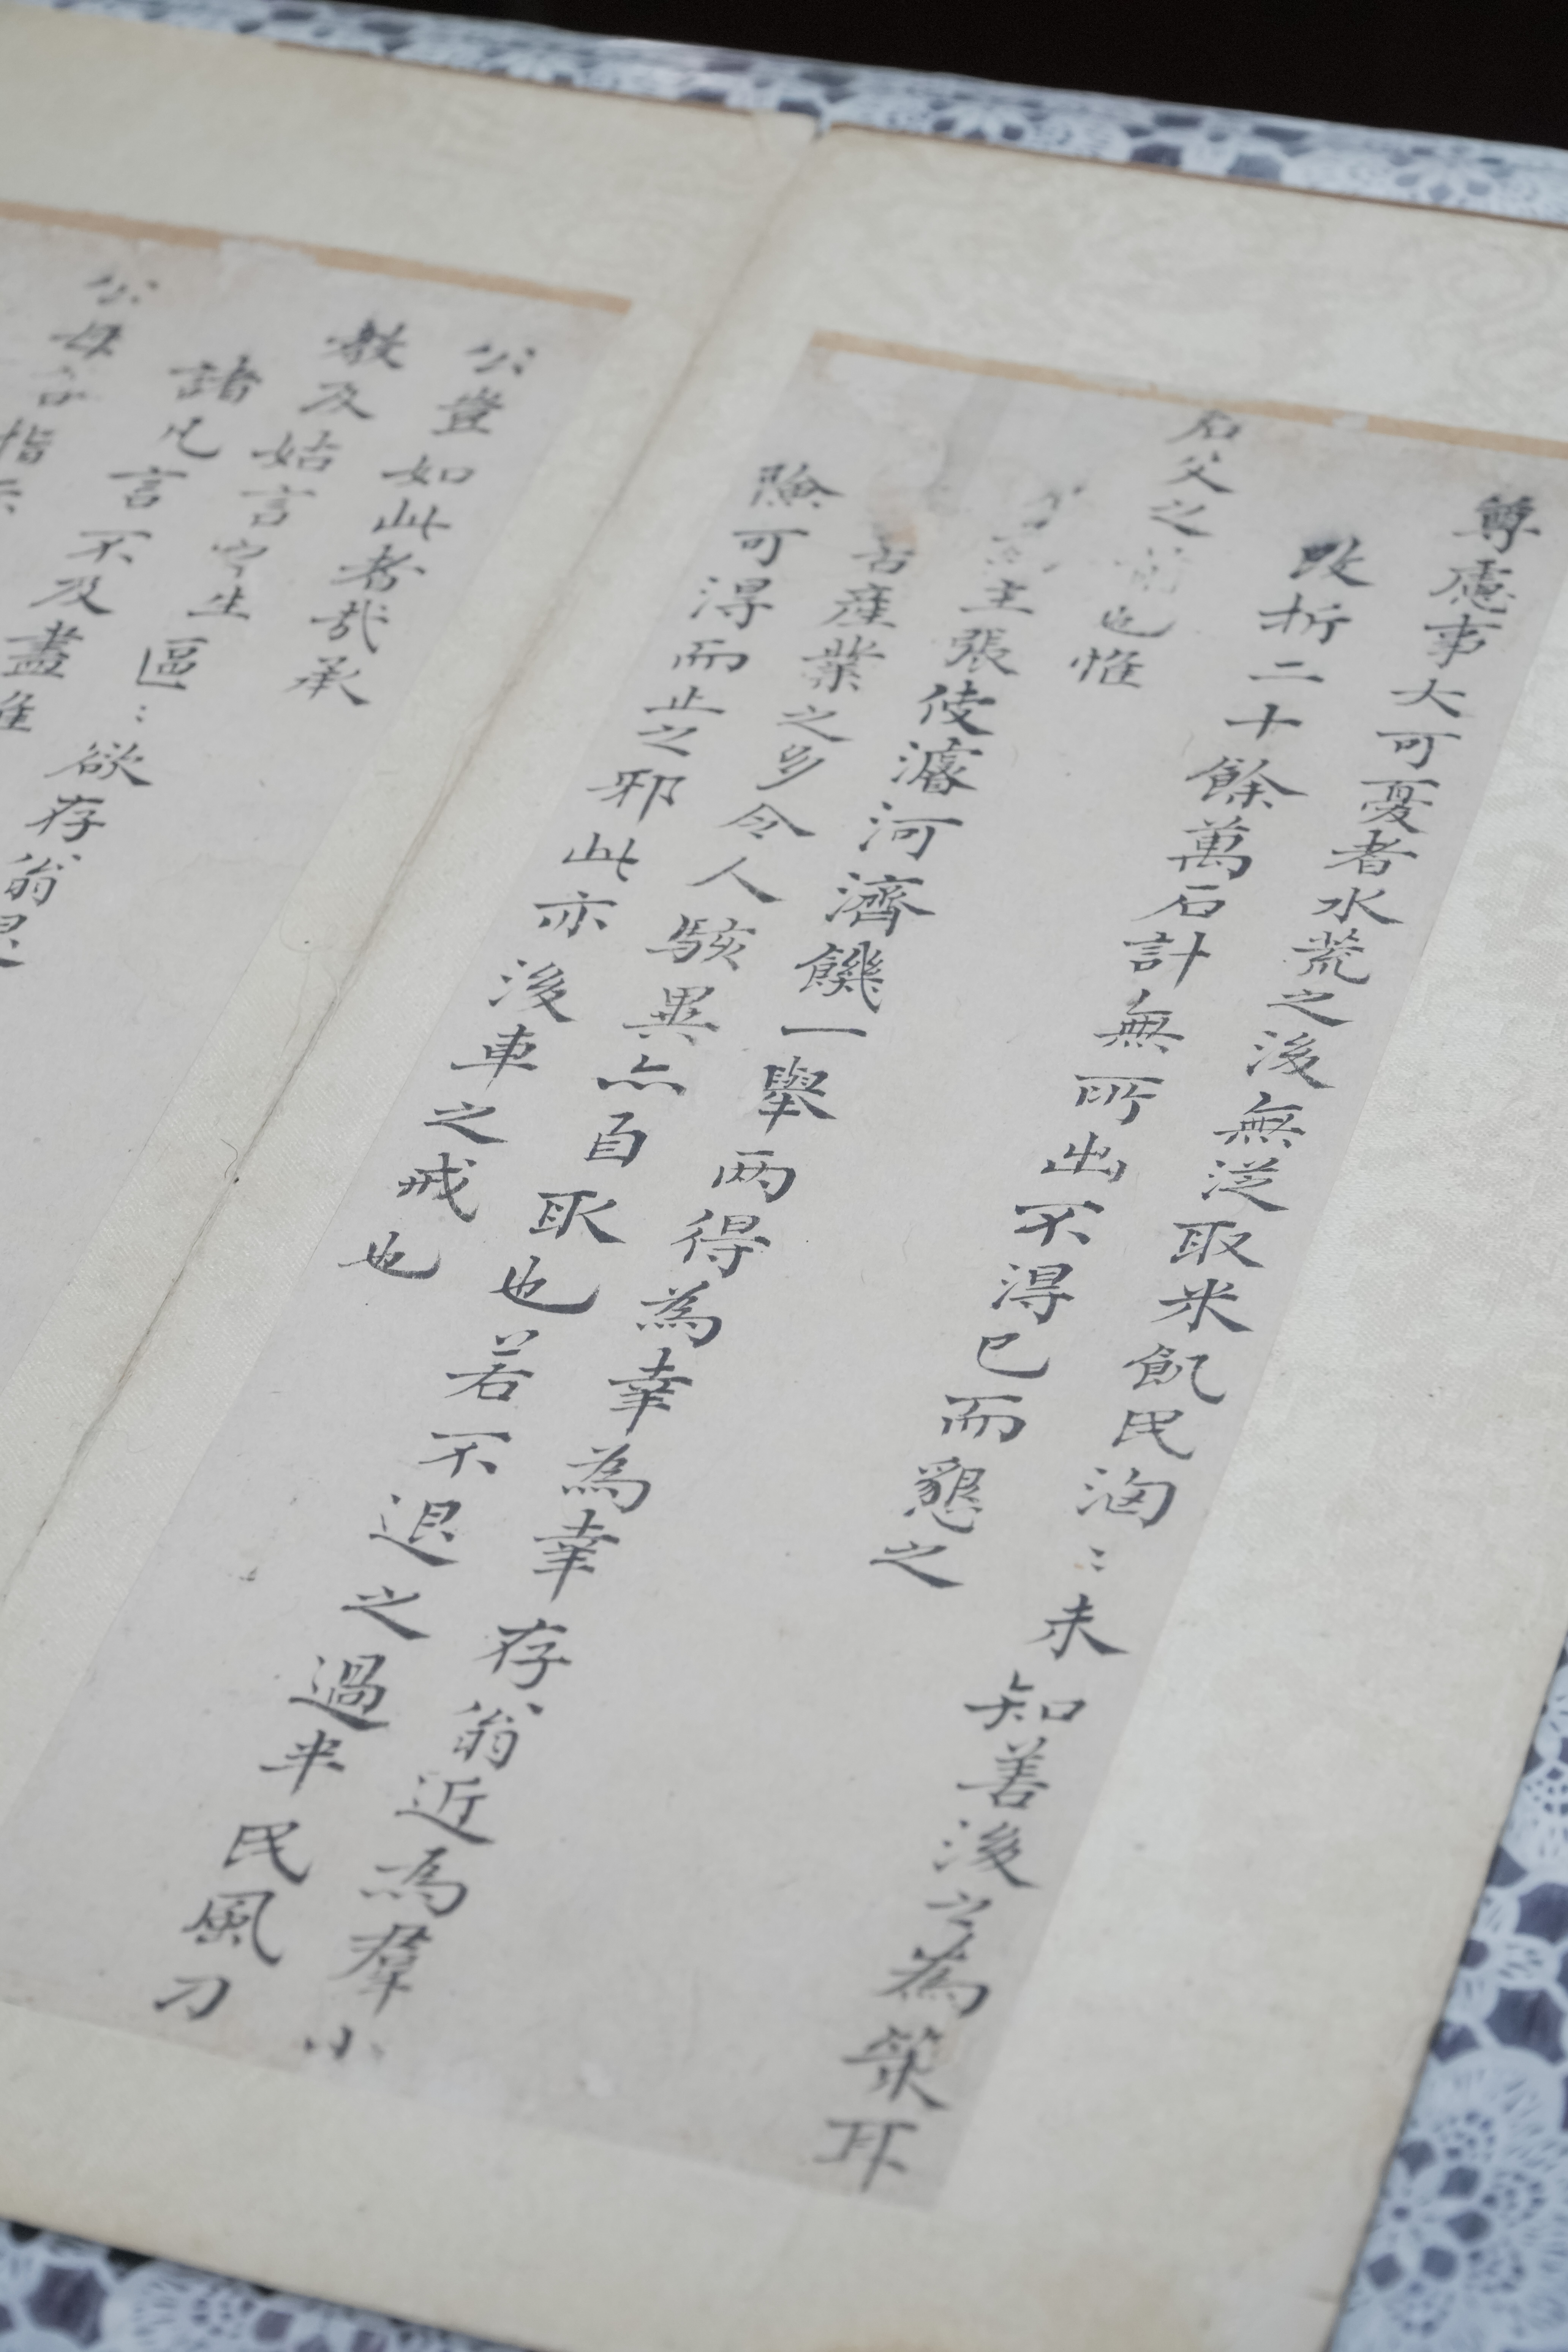 尊慮事大可憂者水荒之後無從取米飢民洶〻未知善後之為策耳
改折二十餘萬石計無所出不得已而懇之
父之前也惟
主張使濬河濟饑一舉两得為幸為幸存翁近為羣小
產業之多令人駭異亦自取也若不退之過半民風刀
險可得而止之邪此亦後車之戒也
公豈如此者哉承
教及姑言生區〻欲存翁
諸凡言不及盡
公毋吝指